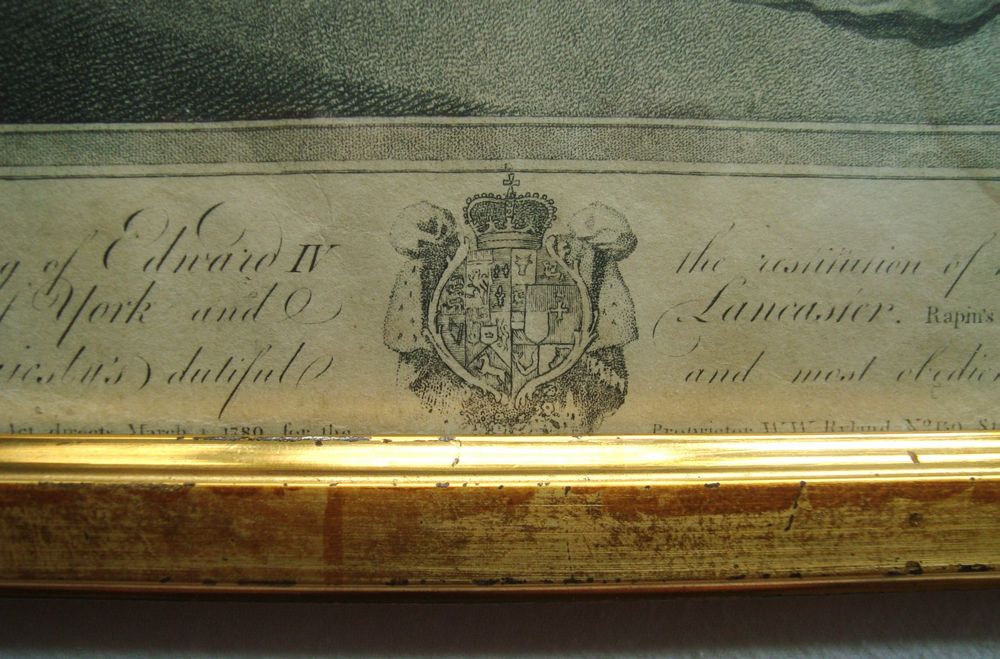 of Edward IV the restitution of
York and Lancaster. Rapin's
dutiful and most
Act directs March 1 1780 for the Proprietor W. Wm. Ryland No.